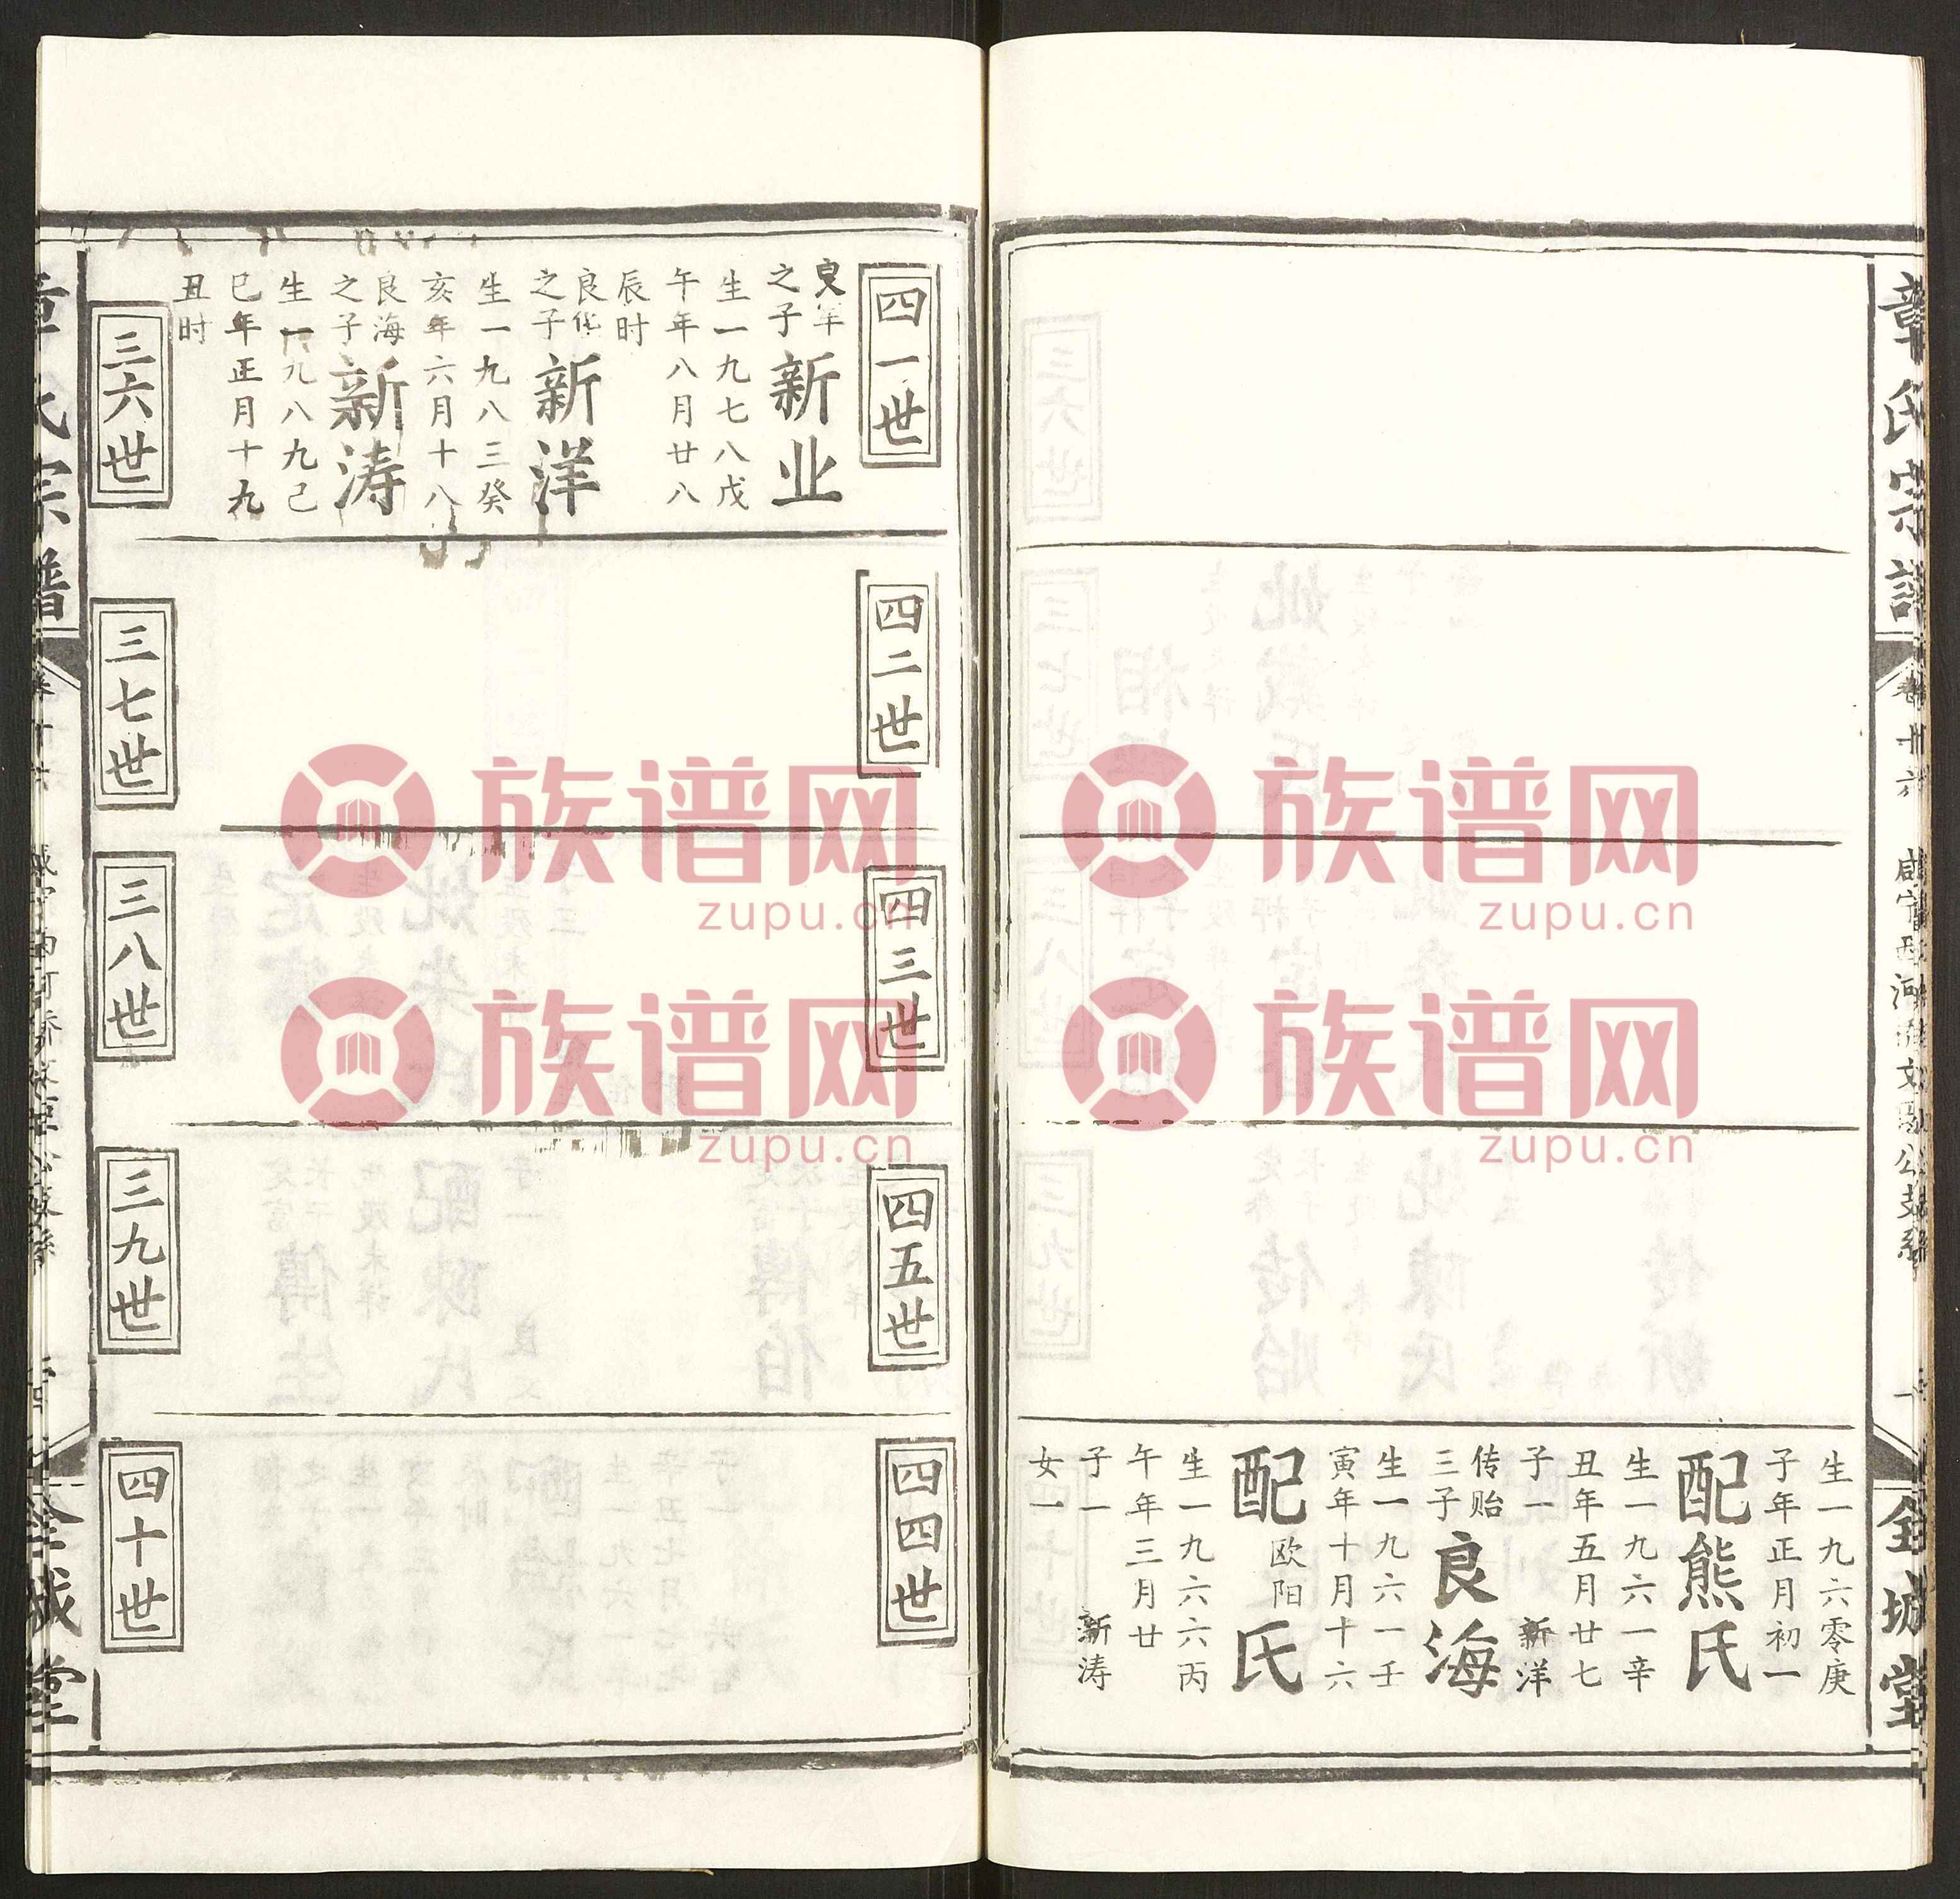 章氏宗譜
卷廿六
全城堂
生一九六零庚
子年正月初一
配熊氏
生一九六一辛
丑年五月廿七
子一 新洋
传贻
三子
良海
生一九六一壬
寅年十月十六
配欧阳氏
生一九六六丙
午年三月廿
子一 新涛
女一
四一世
之子
新业
生一九七八戊
午年八月廿八
辰时
良华
之子
新洋
生一九八三癸
亥年六月十八
良海
之子
新涛
生一九八九己
巳年正月十九
丑时
四二世
四三世
四五世
四四世
三六世
三七世
三八世
三九世
四十世
族谱网
zupu.cn
族谱网
zupu.cn
族谱网
zupu.cn
族谱网
zupu.cn